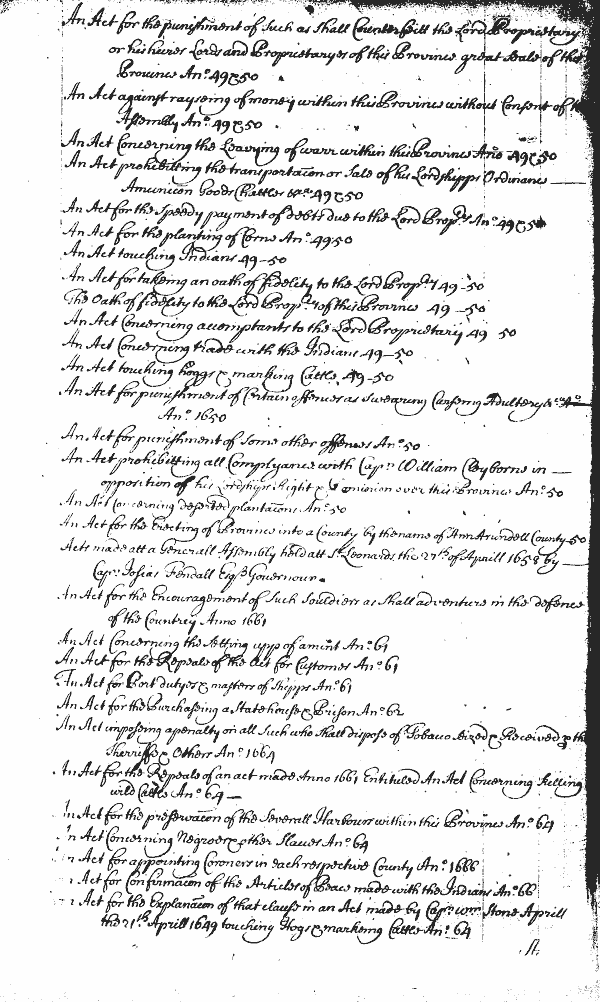 An Act for the punishment of such as shall Counterfeitt the Lord Proprietary
or his heires Lords and Proprietaryes of this Province great Seale of this
Province Ano. 49 & 50
An Act against rayseing of money within this Province without Consent of the
Assembly Ano. 49 & 50
An Act Concerning the Leavying of warr within this Province Ano 49 & 50
An Act prohibitting the transportacon or sale of his Lordshipps Ordinance
Amunicon Goods Chattles &ca. 49 & 50
An Act for the speedy payment of debts due to the Lord Propry. Ano. 49 & 5
An Act for the planting of Corne Ano. 49 50
An Act touching Indians 49-50
An Act for takeing an oath of fidelity to the Lord Propry 49-50
The Oath of fidelity to the Lord Propry of this Province 49-50
An Act Concerning accomptants to the Lord Proprietary 49 50
An Act Concerning trade with the Indians 49-50
An Act touching hoggs & marking Cattle 49-50
An Act for punishment of Certain offences as Swearing Curseing Adultery &c
Ano. 1650
An Act for punishment of some other offences Ano. 50
An Act prohibitting all Complyance with Capn. William Cleyborne in
opposition of his Lordships Right & Dominion over this Province Ano. 50
An Act Concerning deserted plantacons Ano. 50
An Act for the Erecting of Province into a County by the name of Ann Arundell County 50
Acts made att a Generall Assembly held att St. Leonards the 27th of Aprill 1658 by
Capn. Josias Fendall Esqr. Governour.
An Act for the Encouragement of such Souldiers as shall adventure in the defence
of the Countrey Anno 1661
An Act Concerning the setting upp of a mint Ano. 61
An Act for the Repeale of the Act for Customes Ano. 61
An Act for Port dutyes & masters of Shipps Ano. 61
An Act for the Purchaseing a State house & Prison Ano. 62
An Act imposeing a penalty on all such who shall dispose of Tobacco seized & Received by the
Sherriffs & Others Ano. 1664
An Act for the Repeale of an act made Anno 1661 Entituled An Act Concerning killing
wild Cattle Ano. 64
An Act for the preservacon of the Severall Harbours within this Province Ano. 64
An Act Concerning Negroes & other Slaves Ano. 64
An Act for appointing Coroners in each respective County Ano. 1666
An Act for Confirmacon of the Articles of Peace made with the Indians Ano. 66
An Act for the Explanacon of that clause in an Act made by Capn. Wm. Stone Aprill
the 21th Aprill 1649 touching Hogs & markeing Cattle Ano. 64
A.